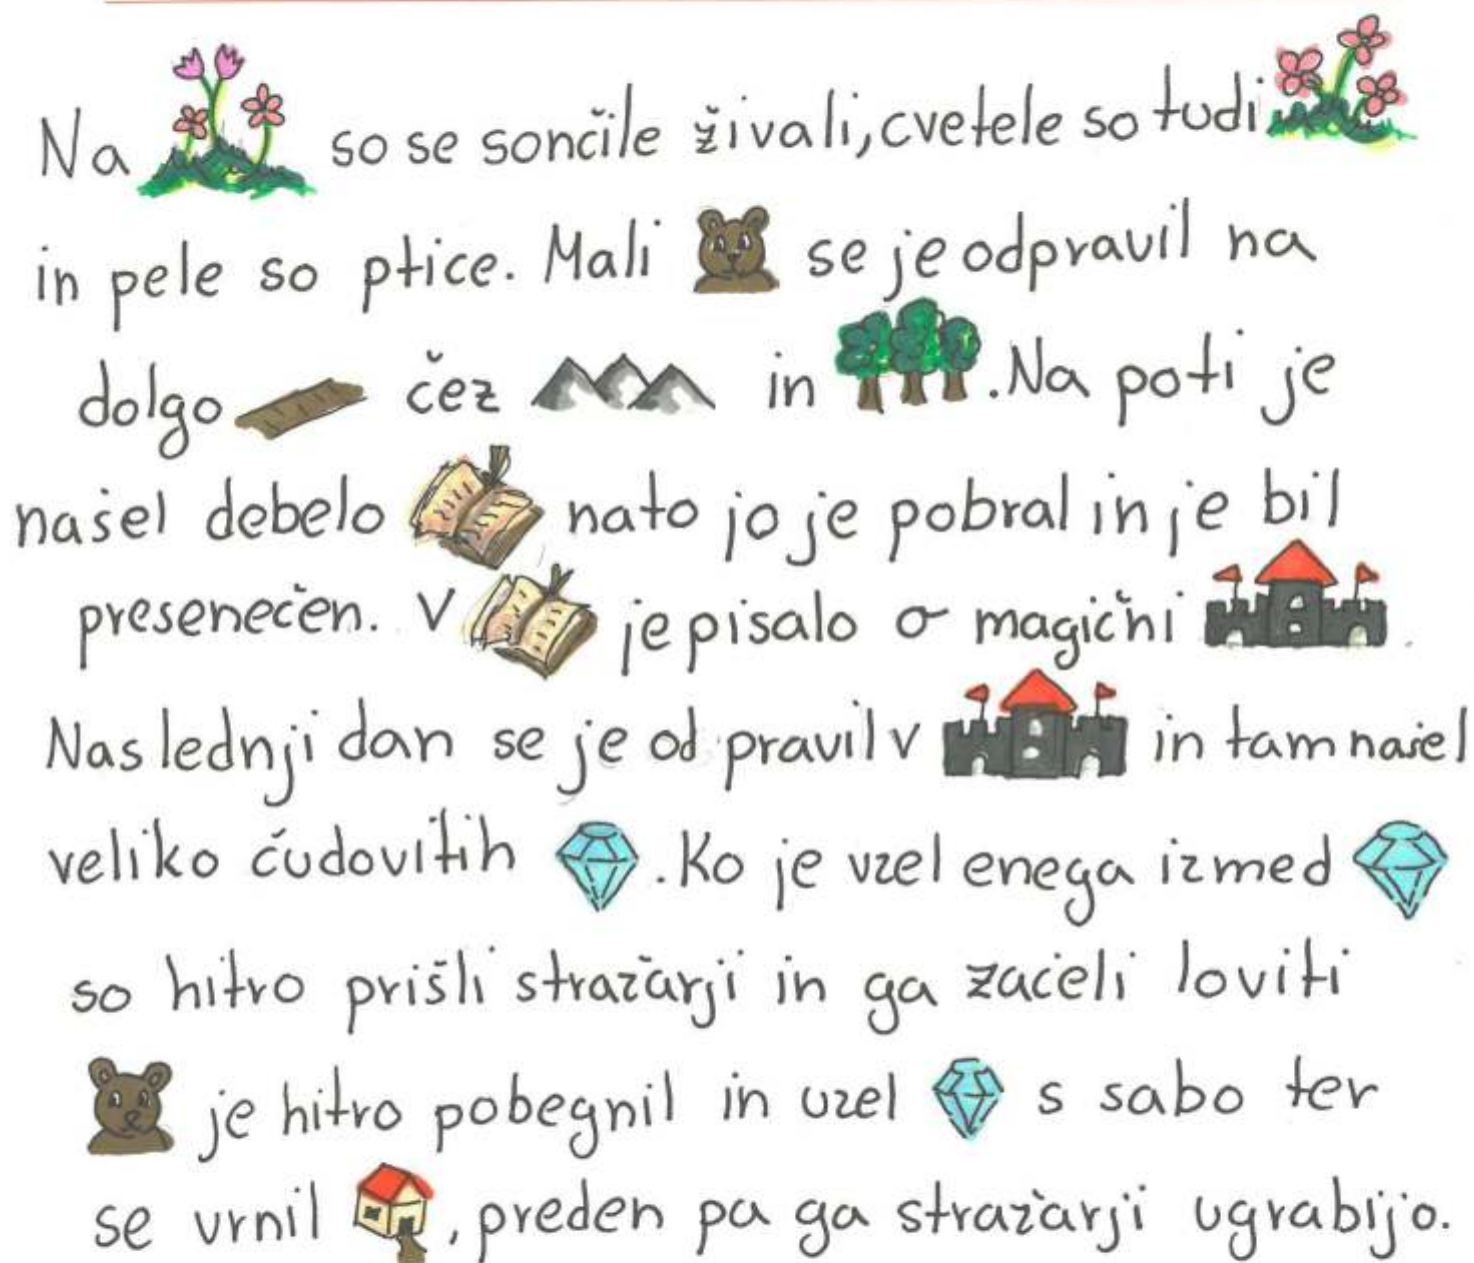 Na so se sončile živali, cvetele so tudi
in pele so ptice. Mali se je odpravil na
dolgo čez in . Na poti je
našel debelo nato jo je pobral in je bil
presenečen. V je pisalo o magični .
Naslednji dan se je odpravil v in tam našel
veliko čudovitih . Ko je vzel enega izmed
so hitro prišli stražarji in ga začeli loviti
je hitro pobegnil in vzel s sabo ter
se vrnil , preden pa ga stražarji ugrabijo.